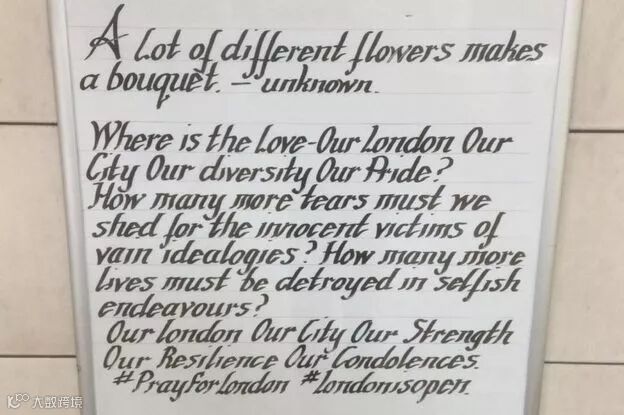 A Lot of different flowers makes
a bouquet. – unknown.
Where is the Love-Our London Our
City Our diversity Our Pride?
How many more tears must we
shed for the innocent victims of
vain idealogies? How many more
lives must be detroyed in selfish
endeavours?
Our London Our City Our Strength
Our Resilience Our Condolences.
#PrayforLondon #Londonisopen.
大数跨境